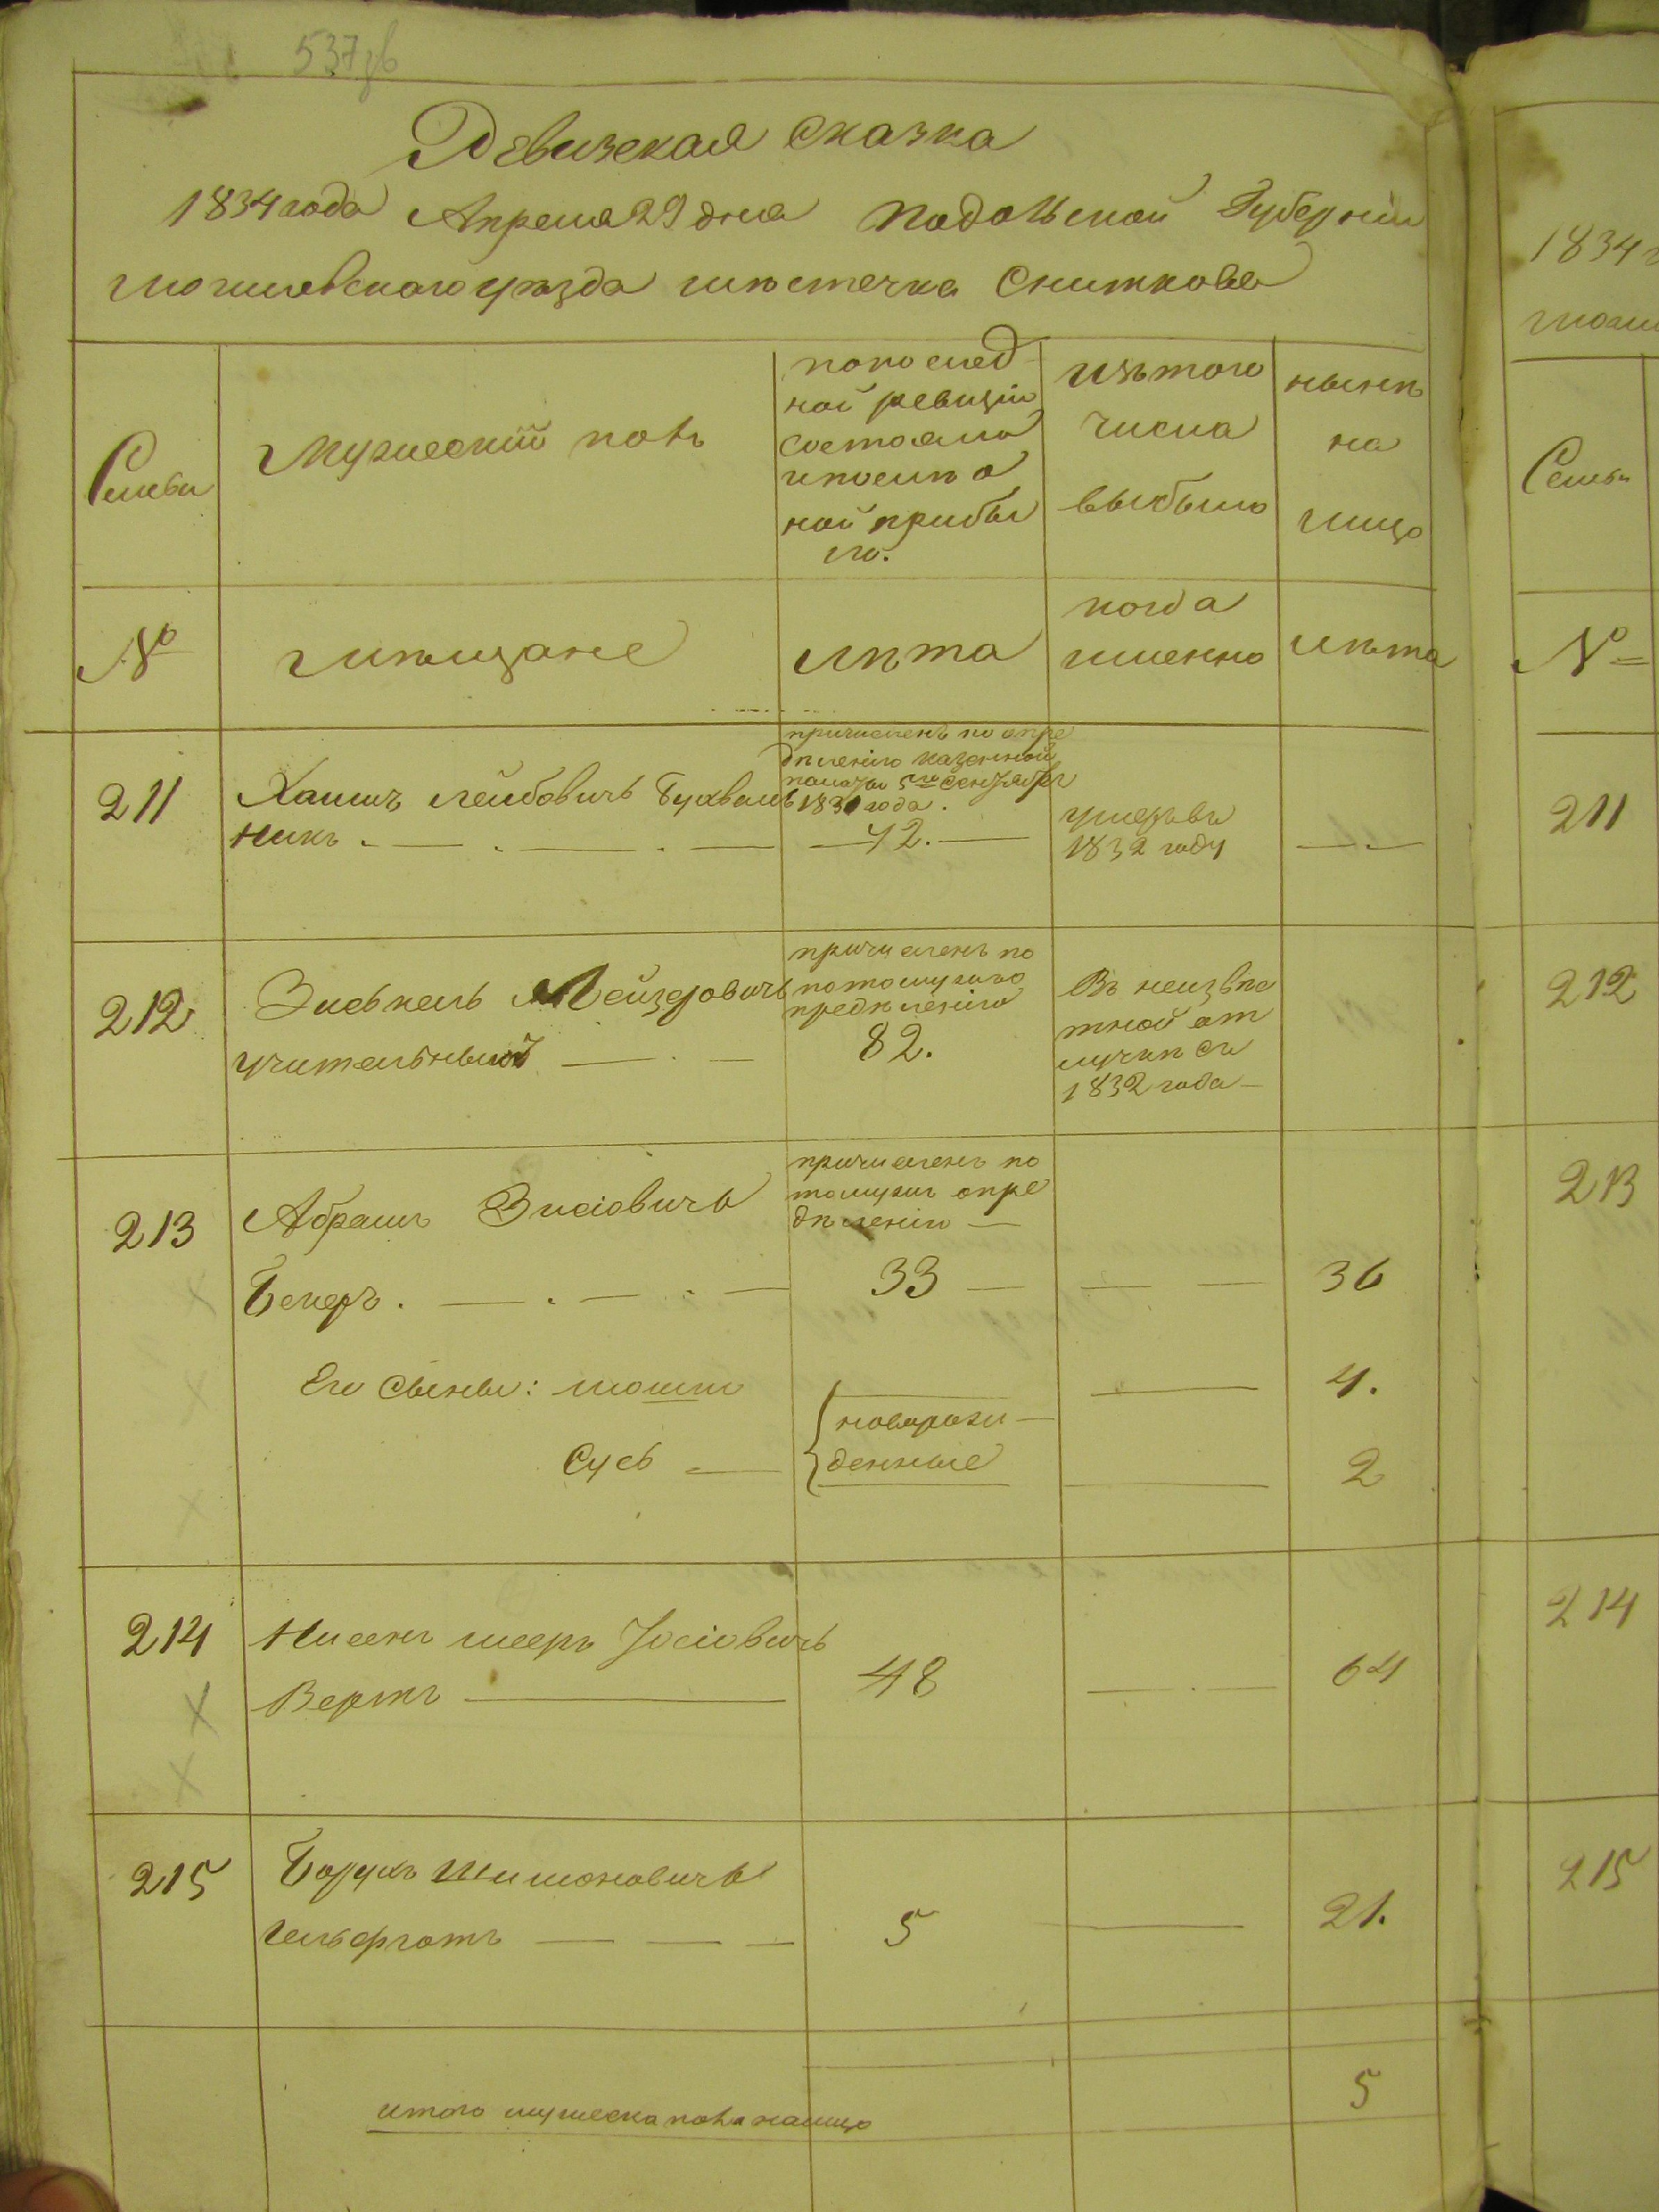 537зв
Ревизская сказка
1834 года Апреля 29 дня Подольской Губернiи
могилевскаго уѣзда мѣстечка Сниткова
Семьи
Мужескiй полъ
по послед
ней ревизiи
состояло
и после о
ной прибы
ло.
изъ того
числа
выбыло
нынѣ
на
лицо
№
мѣщане
лѣта
когда
именно
лѣта
211
Хаимъ Лейбовичъ Бухваль
никъ
причисленъ по опре
дѣленiю казенной
палаты 5го сентября
1830 года.
42.
умеръ въ
1832 году
212
Зиська Мейзеровичъ
учительный
причисленъ по
по томужъ о
предѣленiю
82.
Въ неизвѣс
тной от
лучкѣ съ
1832 года
213
Абрамъ Зисiовичъ
Бекеръ.
причисленъ по
томужъ опре
дѣленiю
33
36
Его сыновы: мошко
4.
новорож
денные
Сусь
2
214
Нисенъ мееръ Iосiовичъ
Вертъ
48
64
215
Борухъ Шимоновичъ
Гельфготъ
5
21.
итого мужеска пола налицо
5
1834 г
моги
Семьи
№
211
212
213
214
215